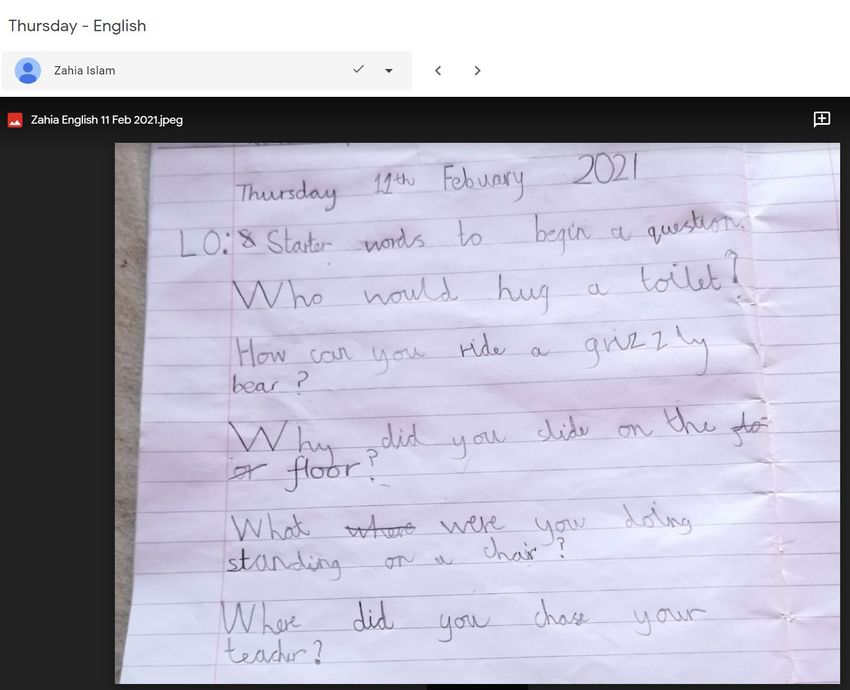 Thursday - English
Zahia Islam
Zahia English 11 Feb 2021.jpeg
Thursday 11th Febuary 2021
LO: Starter words to begin a question.
Who would hug a toilet?
How can you ride a grizzly
bear?
Why did you slide on the flo
or floor?
What where were you doing
standing on a chair?
Where did you chase your
teacher?